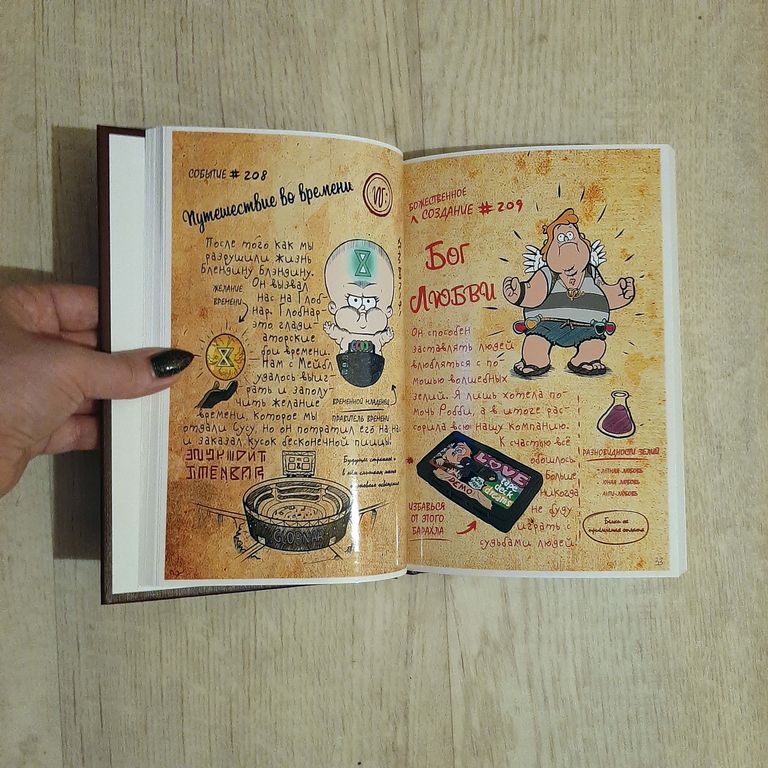 СОБЫТИЕ # 208
Путешествие во времени
После того как мы
разрушили жизнь
Блендину Блэндину.
Он вызвал
нас на Глоб-
нар. Глобнар-
это глади-
аторские
бои времени.
Нам с Мейбл
удалось выиг-
рать и заполу-
чить желание
времени, которое мы
отдали Сусу, но он потратил его на
и заказал кусок бесконечной пиццы.
ЖЕЛАНИЕ
ВРЕМЕНИ
ВРЕМЕННОЙ МЛАДЕНЕЦ
ПРАВИТЕЛЬ ВРЕМЕНИ
Будущее странное
в нём слишком много
освещения
GLOBNAR
БОЖЕСТВЕННОЕ
СОЗДАНИЕ # 209
БОГ
ЛЮБВИ
Он способен
заставлять людей
влюбляться с по-
мощью волшебных
зелий. Я лишь хотела по-
мочь Робби, а в итоге рас-
сорила всю нашу компанию.
К счастью всё
обошлось.
Больше
никогда
не буду
играть с
судьбами людей
LOVE
tape
deck
dreams
DEMO
ИЗБАВЬСЯ
ОТ ЭТОГО
БАРАХЛА
РАЗНОВИДНОСТИ ЗЕЛИЙ
ЛЕТНЯЯ ЛЮБОВЬ
ЮНАЯ ЛЮБОВЬ
АНТИ-ЛЮБОВЬ
33